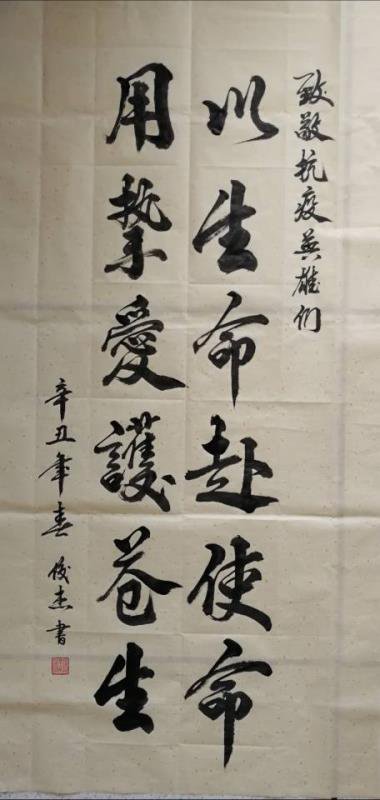 致敬抗疫英雄们
以生命赴使命
用挚愛護苍生
辛丑年春俊杰書